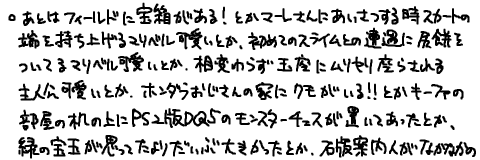 。あとはフィールドに宝箱がある！とかマーレさんにあいさつする時スカートの
端を持ち上げるマリベル可愛いとか、初めてのスライムとの遭遇に尻餅を
ついてるマリベル可愛いとか、相変わらず玉座にムリヤリ座らされる
主人公可愛いとか、ホンダラおじさんの家にクモがいる!!とかキーファの
部屋の机の上にPS2版DQ5のモンスターチェスが置いてあったとか、
緑の宝玉が思ってたよりだいぶ大きかったとか、石版案内人がなかなかの